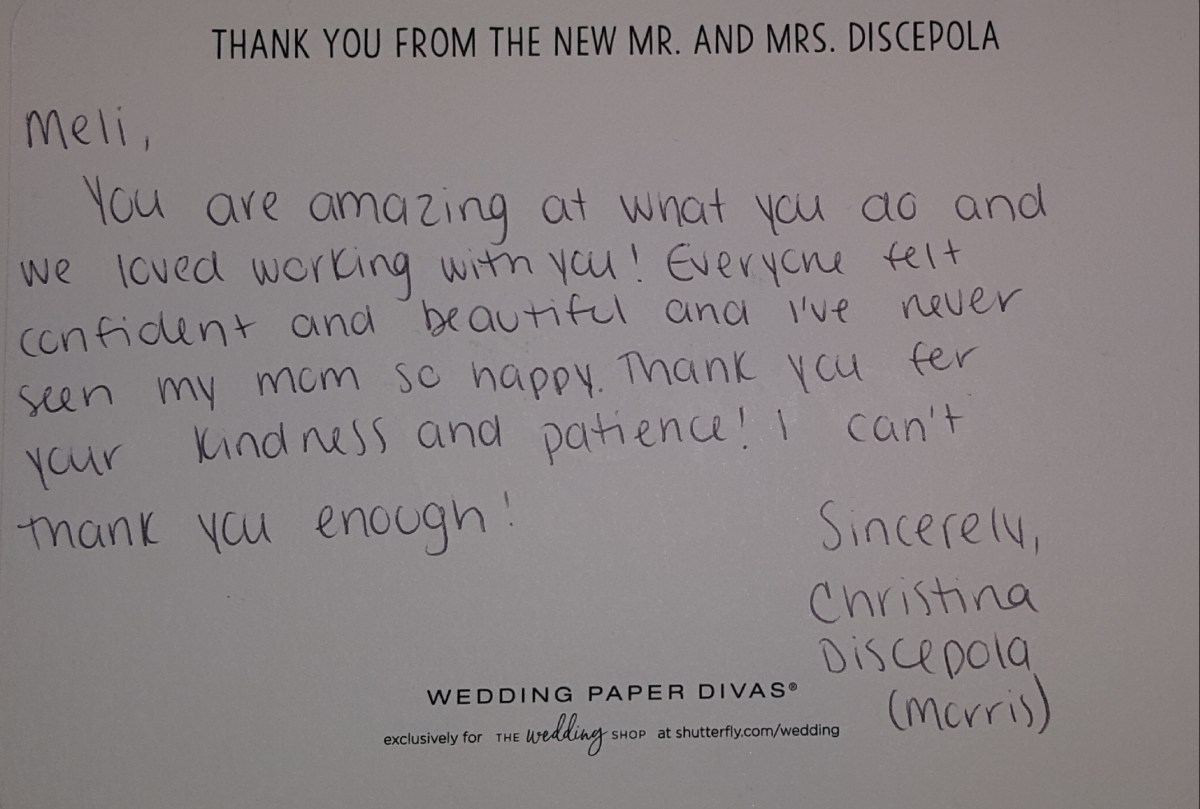 THANK YOU FROM THE NEW MR. AND MRS. DISCEPOLA
Meli,
You are amazing at what you do and
we loved working with you! Everyone felt
confident and beautiful and I've never
seen my mom so happy. Thank you for
your kindness and patience! I can't
thank you enough!
Sincerely,
Christina
Discepola
(Morris)
WEDDING PAPER DIVAS®
exclusively for THE wedding SHOP at shutterfly.com/wedding